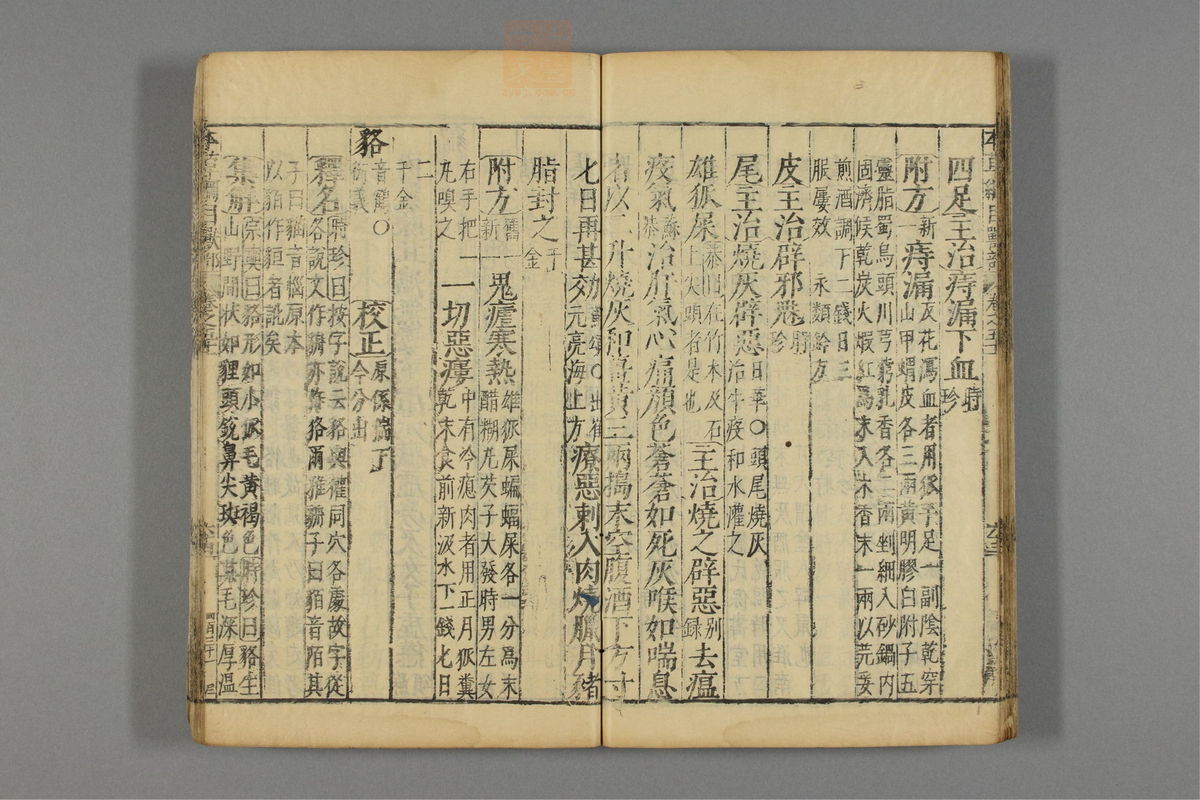 四足主治痔漏下血時珍
附方新一痔漏反花瀉血者用狐手足一副陰乾穿
山甲蝟皮各三兩黃明膠白附子五
靈脂蜀烏頭川芎藭乳香各二兩剉細入砂鍋內
固濟候乾炭火煅紅爲末入木香末一兩以芫荽
煎酒調下二錢日三
服屢效 永類鈐方
皮主治辟邪魅時珍
尾主治燒灰辟惡日華〇頭尾燒灰
治牛疫和水灌之
雄狐屎恭曰在竹木及石
上尖頭者是也主治燒之辟惡别録去瘟
疫氣蘇恭治肝氣心痛顔色蒼蒼如死灰喉如喘息
者以二升燒灰和薑黃三兩搗末空腹酒下方寸
匕日再甚效蘇頌〇出崔
元亮海上方療惡刺入肉燒臘月豬
脂封之千金
附方舊一新一鬼瘧寒熱雄狐屎蝙蝠屎各一分爲末
醋糊丸芡子大發時男左女
右手把一
丸嗅之 一切惡瘻中有冷瘜肉者用正月狐糞
乾末食前新汲水下一錢匕日
二
千金
貉音鶴〇
衍義 校正原係
今分出
釋名時珍曰按字說云貉與獾同穴各處故字從
各說文作貈亦作狢爾雅貈子曰貊音陌其
子曰貆音桓原本
以貊作狟者訛矣
集解宗奭曰貉形如小狐毛黃褐色時珍曰貉生
山野間狀如貍頭銳鼻尖斑色其毛深厚溫